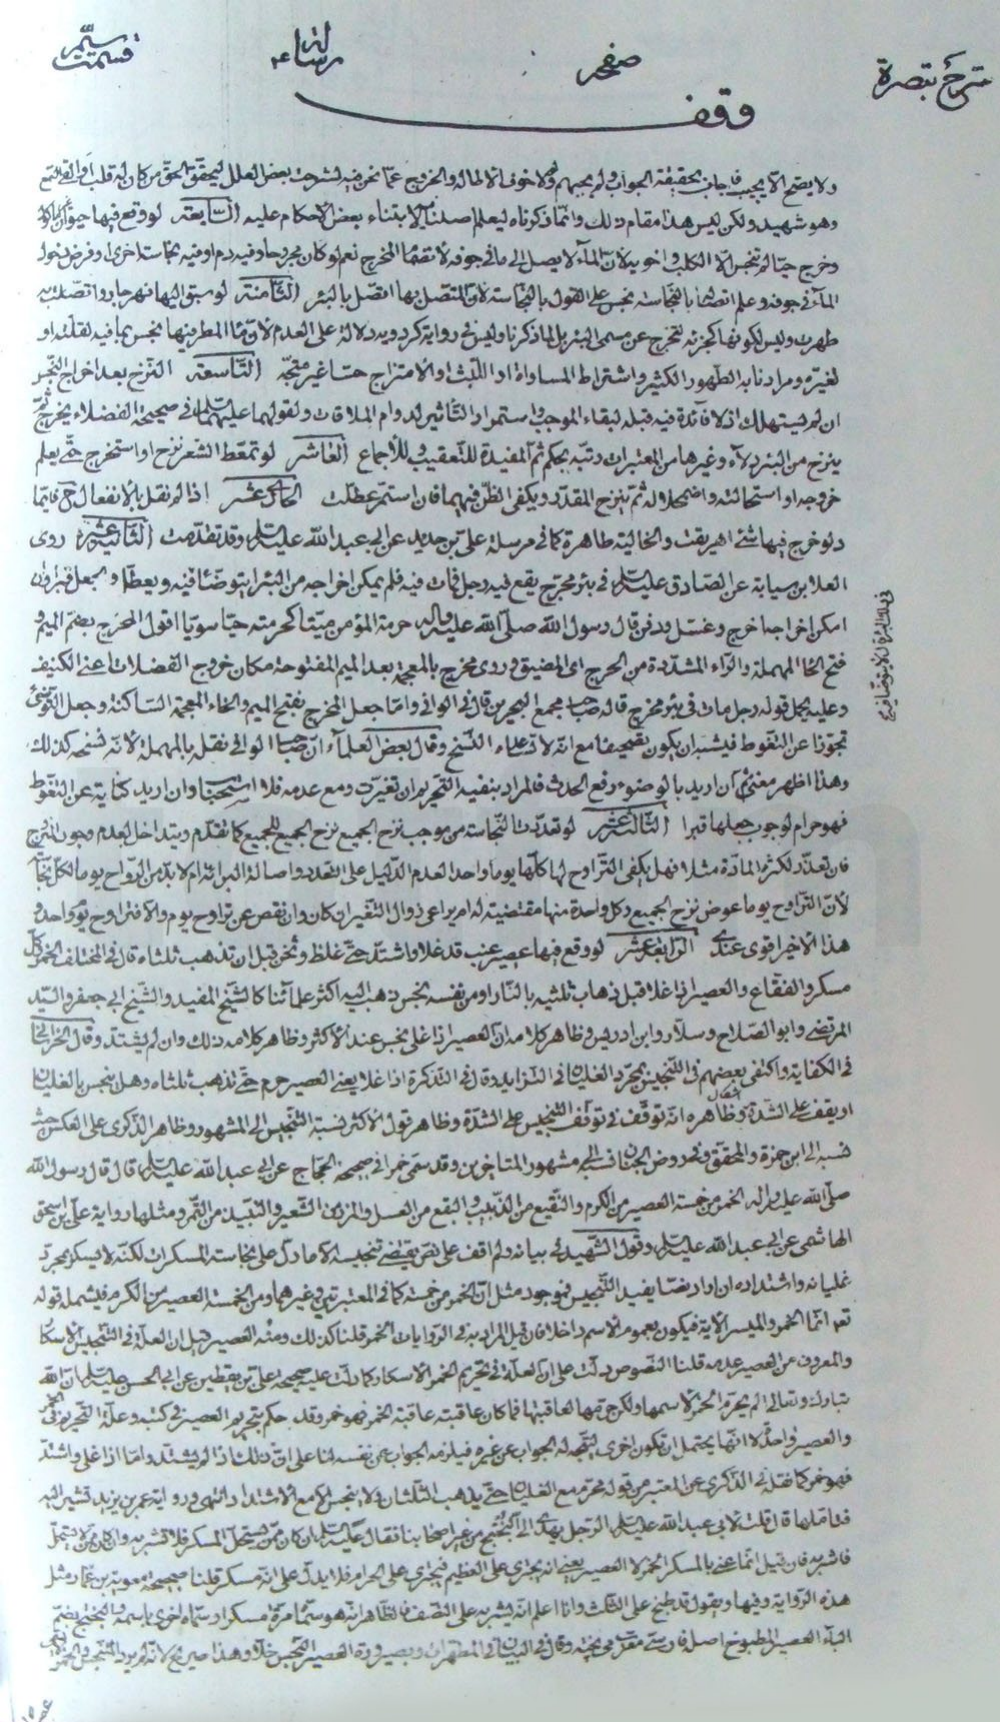 شرح تبصرة صفحه رسالة قسمت
وقف
وهو شهيد ولكن ليس هذا مقام ذلك وانما ذكرناه ليعلم اصلنا لابتناء بعض الاحكام عليه السابعة لو وقع فيها حيوان
وخرج حيا لم تنجس الا الكلب واخويه لان الماء لا يصل الى ما في جوفه لانضمام المخرج نعم لو كان مجروحا وفيه دم او فيه نجاسة اخرى او فرض دخول
الماء في جوفه وعلم اتصاله بالنجاسة نجس على القول بالنجاسة لان المتصل بها اتصل بالبئر الثامنة لو سيق اليها نهر جار واتصلت به
طهرت وليس لكونها كجزئه لتخرج عن مسمى البئر بل لما ذكرنا وليس في رواية كردويه دلالة على العدم لان ماء المطر فيها نجس بما فيه لقلته او
لغيره ومرادنا به الطهور الكثير واشتراط المساواة او اللبث او الامتزاج حسا غير متجه التاسعة النزح بعد اخراج النجس
ان لم يستهلك اذ لا فائدة فيه قبله لبقاء الموجب واستمرار التأثير لدوام الملاقات ولقولهما عليهما السلام في صحيحة الفضلاء يخرج ثم
ينزح من البئر دلاء وغيرها من المعتبرات رتبه بحكم ثم المفيدة للتعقيب وللاجماع العاشر لو تمعط الشعر نزح او استخرج حتى يعلم
خروجه او استحالته واضمحلاله ثم ينزح المقدر ويكفى الظن فيهما فان استمر عطلت الحادي عشر اذا لم نقل بالانفعال
دلو خرج فيها شئ اهريقت والخالية طاهرة كما في مرسلة على بن حديد عن ابي عبد الله عليه السلام وقد تقدمت الثانية عشر روى
العلا بن سيابة عن الصادق عليه السلام في بئر محرج يقع فيه رجل فمات فيه فلم يمكن اخراجه من البئر ايتوضأ فيه قال لا يتوضأ فيه ويعطل ويجعل قبرا وان
امكن اخراجه اخرج وغسل ودفن قال رسول الله صلى الله عليه واله حرمة المؤمن ميتا كحرمته حيا سويا اقول المحرج بضم الميم و
فتح الحاء المهملة والراء المشددة من الحرج اى المضيق وروى مخرج بالمعجمة بعد الميم المفتوحة مكان خروج الفضلات اعني الكنيف
وعليه يحمل قوله رجل مات في بئر مخرج قاله صاحب مجمع البحرين قال في الوافي واما جعل المخرج بفتح الميم والخاء المعجمة الساكنة وجعل التوضئ
تجوزا عن التغوط فيشبه ان يكون تصحيفا مع انه لا تساعده النسخ وقال بعض العلماء ان صاحب الوافي نقله بالمهملة لانه نسخه كذلك
وهذا اظهر معنى ثم ان اريد بالوضوء رفع الحدث فالمراد بنفيه التحريم ان تغيرت ومع عدمه فلا استحبابا وان اريد كناية عن التغوط
فهو حرام لوجوب جعلها قبرا الثالث عشر لو تعددت النجاسة من موجب نزح الجميع نزح الجميع للجميع كما تقدم ويتداخل لعدم وجود المنزوح
فان تعذر لكثرة المادة مثلا فهل يكفى التراوح لها كلها يوما واحدا لعدم الدليل على التعدد واصالة البرائة ام لا بد من التراوح يوما لكل نجاسة
لان التراوح يوما عوض نزح الجميع وكل واحدة منها مقتضية له ام يراعى زوال التغير ان كان وان نقص عن تراوح يوم والا فتراوح يوم واحد و
هذا الاخير اقوى عندى الرابع عشر لو وقع فيها عصير عنب قد غلا واشتد حتى غلظ وثخن قبل ان تذهب ثلثاه قال في المختلف الخمر وكل
مسكر والفقاع والعصير اذا غلا قبل ذهاب ثلثيه بالنار او من نفسه نجس ذهب اليه اكثر علمائنا كالشيخ المفيد والشيخ ابي جعفر والسيد
المرتضى وابو الصلاح وسلار وابن ادريس وظاهر كلامه ان العصير اذا غلى نجس عند الاكثر وظاهر كلامه ذلك وان لم يشتد وقال
في الكفاية واكتفى بعضهم في التنجيس بمجرد الغليان وقال في التذكرة اذا غلا يعنى العصير حرم حتى تذهب ثلثاه وهل ينجس بالغليان
او يقف على الشدة اشكال وظاهره انه توقف في توقف التنجيس على الشدة وظاهر قول الاكثر نسبة التنجيس الى المشهور وظاهر الذكرى على العكس حيث
نسبه الى ابن حمزة والمحقق وفي روض الجنان نسبه الى مشهور المتاخرين وقد سمى خمرا في صحيحة الحجاج عن ابي عبد الله عليه السلام قال قال رسول الله
صلى الله عليه واله الخمر من خمسة العصير من الكرم والنقيع من الزبيب والبتع من العسل والمزر من الشعير والنبيذ من التمر ومثلها رواية على بن اسحق
الهاشمى عن ابي عبد الله عليه السلام وقول الشهيد في بيانه ولم اقف على نص يقتضى تنجيسه الا ما دل على نجاسة المسكرات لكنه لا يسكر بمجرد
غليانه واشتداده ان اراد نصا يفيد التنجيس فموجود مثل ان الخمر من خمسة كما في المعتبرتين وغيرهما ومن الخمسة العصير من الكرم فيشمله قوله
تع انما الخمر والميسر الاية فيكون بعموم الاسم داخلا فان قيل المراد به في الروايات الخمر قلنا كذلك ومنه العصير قيل ان العلة في التنجيس الاسكار
والمعروف من العصير عدمه قلنا النصوص دلت على ان العلة في تحريم الخمر الاسكار كما دلت عليه صحيحة على بن يقطين عن ابي الحسن عليه السلام ان الله
تبارك وتعالى لم يحرم الخمر لاسمها ولكن حرمها لعاقبتها فما كان عاقبته عاقبة الخمر فهو خمر وقد حكم بتحريم العصير في كتبه وعلة التحريم في الخمر
والعصير واحدة لا انها يحتمل ان تكون اخرى
فهو خمر كما
فتاملها قال قلت لابي عبد الله عليه السلام الرجل يهدى الى البختج من غير اصحابنا فقال عليه السلام ان كان ممن يستحل المسكر فلا تشربه وان كان ممن لا يستحل
فاشربه فان قيل انما عنى بالمسكر الخمر لا العصير يعنى انه يجترى على العظيم فيجترى على الحرام فلا يدل على انه مسكر قلنا صحيحة معوية بن عمار مثل
هذه الرواية وفيها ويقول قد طبخ على الثلث وانا اعلم انه يشربه على النصف فالظاهر انه هو سماه مرة مسكرا وسماه اخرى باسمه والبختج بضم
الباء العصير المطبوخ اصله فارسى معرب مى پخته وقال في البيان في المطهرات وبصيرورة العصير النجس خلا وهذا صريح